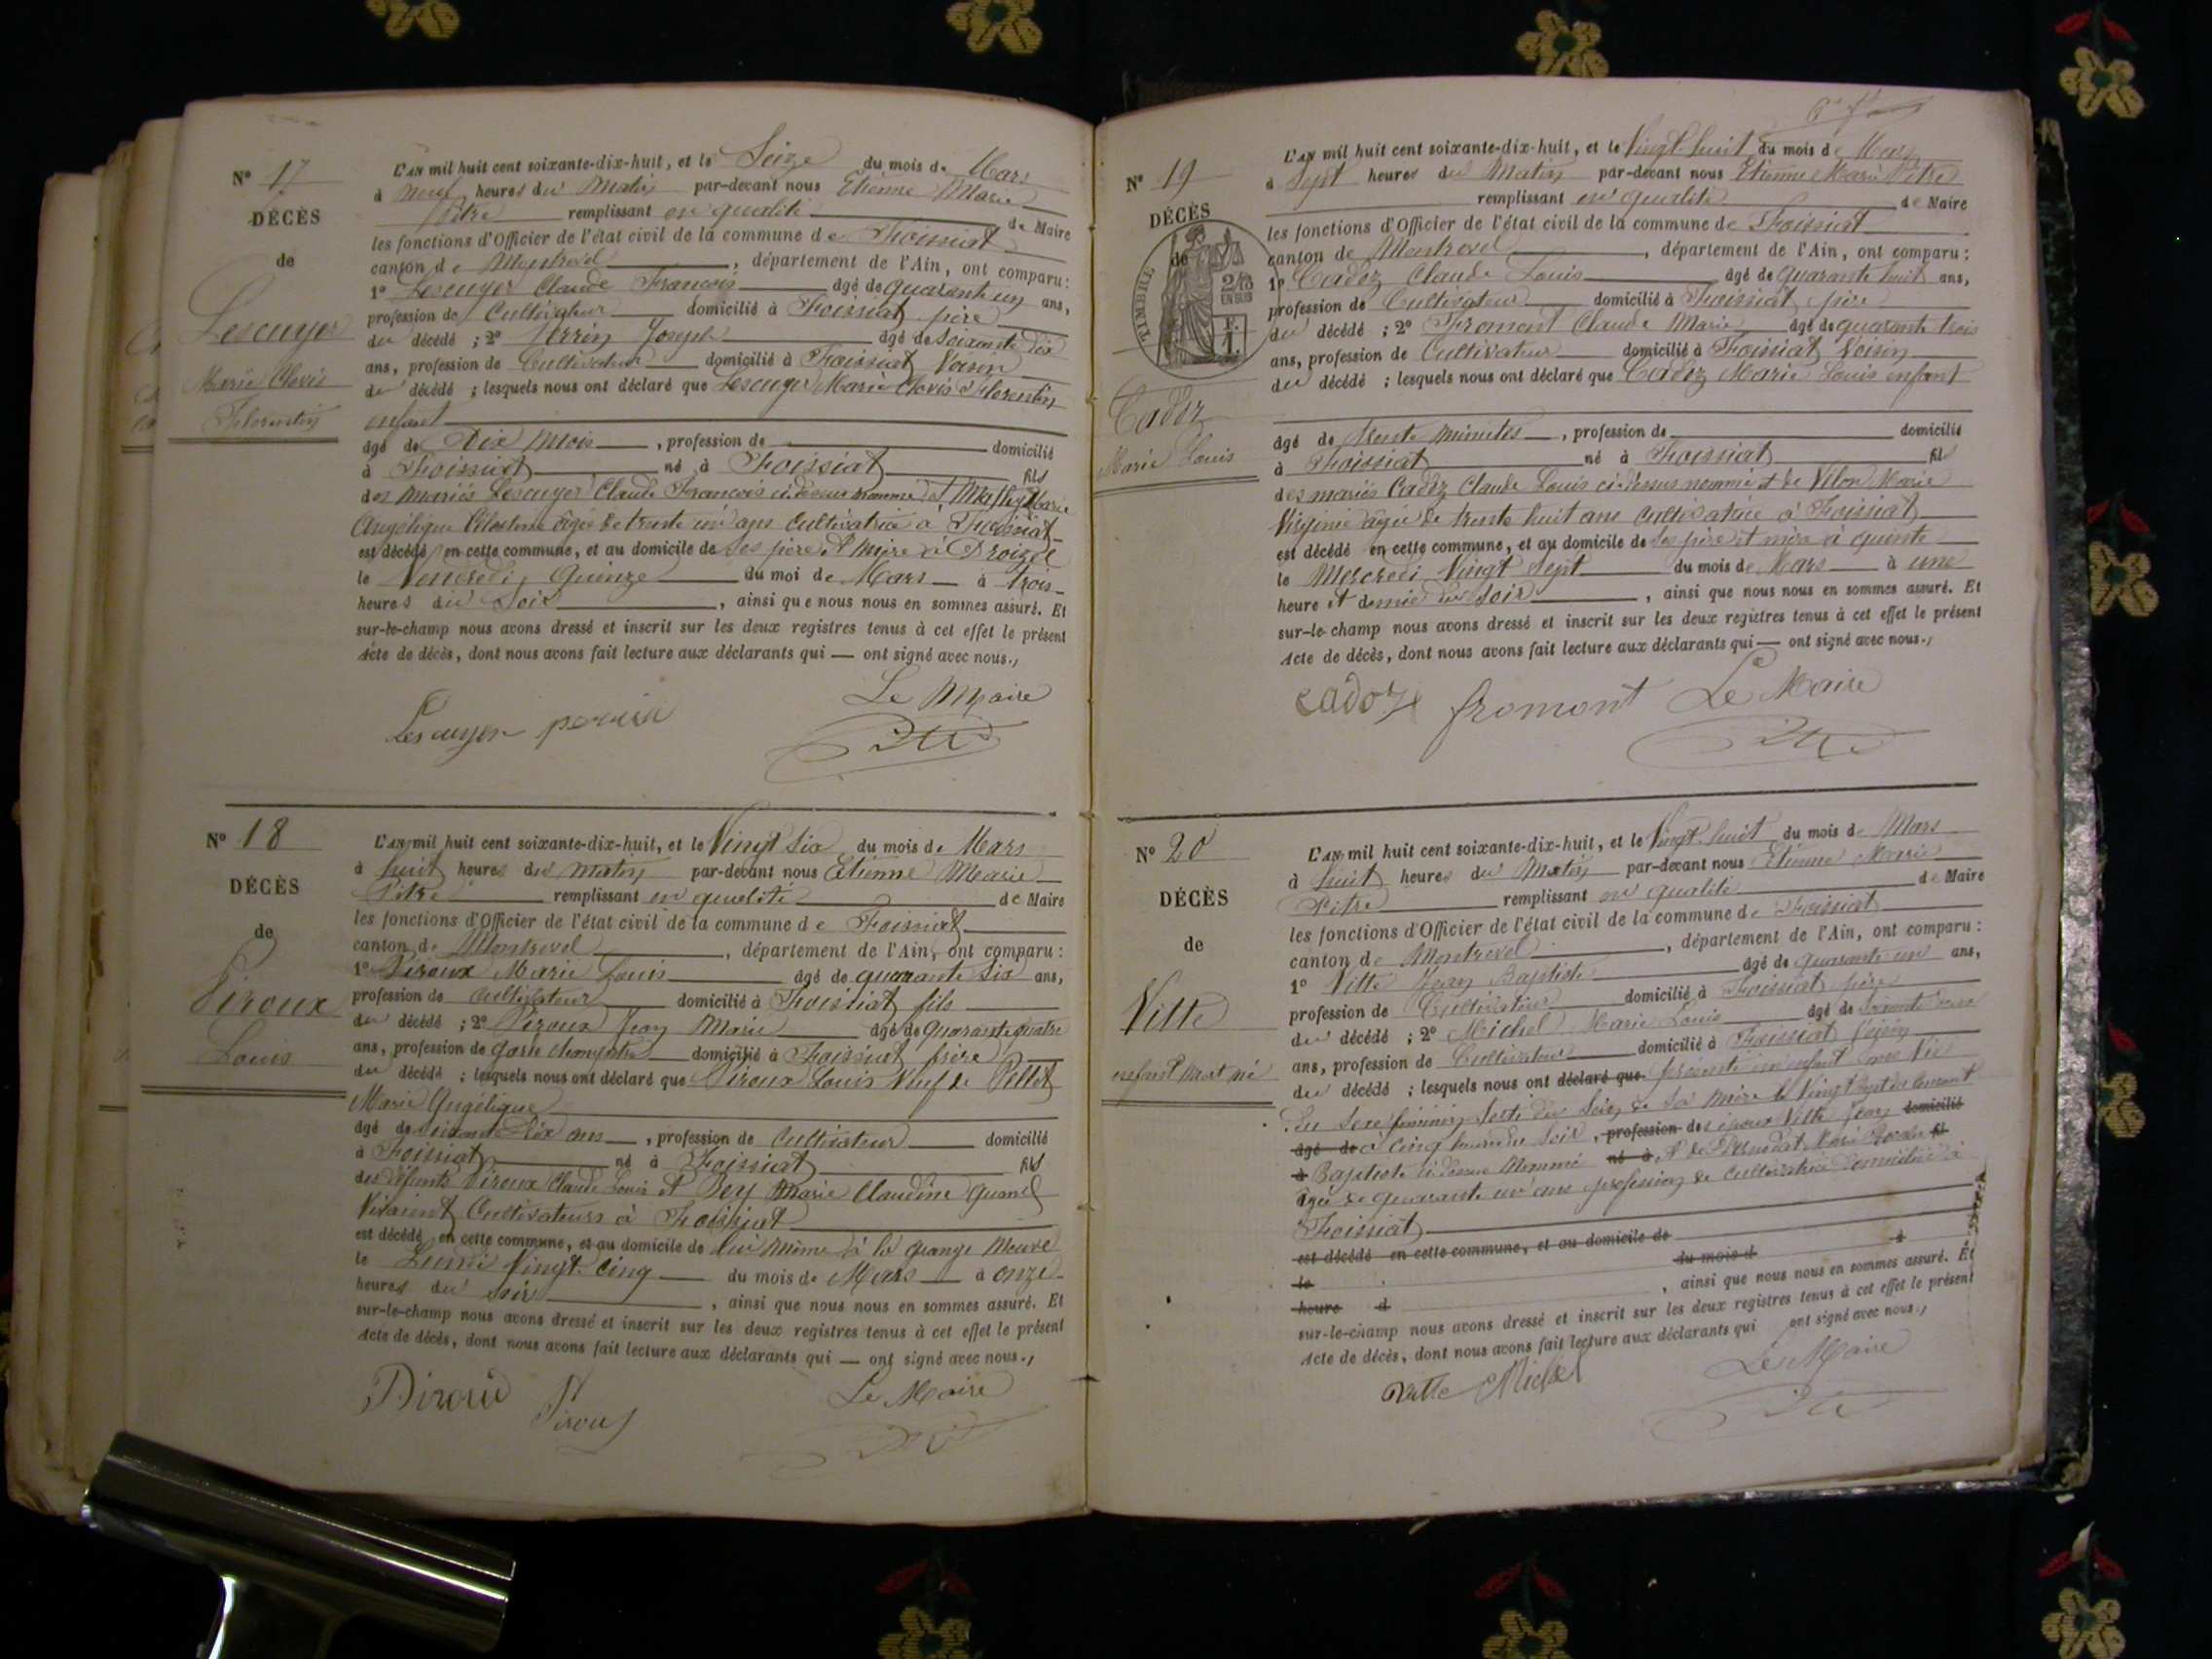 N° 17
DÉCÈS
de
Lescuyer
Marie Clovis
Florentin
L'AN mil huit cent soixante-dix-huit, et le Seize du mois de Mars
à neuf heures du Matin par-devant nous Etienne Marie
Pitre remplissant en qualité de Maire
les fonctions d'Officier de l'état civil de la commune de Foissiat
canton de Montrevel, département de l'Ain, ont comparu:
1° Lescuyer Claude François âgé de quarante un ans,
profession de Cultivateur domicilié à Foissiat père
du décédé ; 2° Perrin Joseph âgé de soixante dix
ans, profession de Cultivateur domicilié à Foissiat Voisin
du décédé ; lesquels nous ont déclaré que Lescuyer Marie Clovis Florentin
enfant
âgé de Dix Mois, profession de domicilié
à Foissiat né à Foissiat fils
des mariés Lescuyer Claude François ci dessus nommé et Marie
Angélique âgée de trente un ans Cultivatrice à Foissiat
est décédé en cette commune, et au domicile de ses père et mère à
le Vendredi Quinze du moi de Mars à trois
heures du Soir, ainsi que nous nous en sommes assuré. Et
sur-le-champ nous avons dressé et inscrit sur les deux registres tenus à cet effet le présent
Acte de décès, dont nous avons fait lecture aux déclarants qui — ont signé avec nous.,
Le Maire
Lescuyer
N° 18
DÉCÈS
de
Piroux
Louis
L'AN mil huit cent soixante-dix-huit, et le Vingt Six du mois de Mars
à huit heures du matin par-devant nous Etienne Marie
Pitre remplissant en qualité de Maire
les fonctions d'Officier de l'état civil de la commune de Foissiat
canton de Montrevel, département de l'Ain, ont comparu :
1° Piroux Marie Louis âgé de quarante six ans,
profession de cultivateur domicilié à Foissiat fils
du décédé ; 2° Piroux Jean Marie âgé de quarante quatre
ans, profession de Garde champêtre domicilié à Foissiat frère
du décédé ; lesquels nous ont déclaré que Piroux Louis Veuf de Pellet
Marie Angélique
âgé de soixante Dix ans, profession de Cultivateur domicilié
à Foissiat né à Foissiat fils
des défunts Piroux Claude Louis et Rey Marie Claudine quand
Vivaient Cultivateurs à Foissiat
est décédé en cette commune, et au domicile de lui même à la grange Neuve
le Lundi Vingt. Cinq du mois de Mars à onze
heures du soir, ainsi que nous nous en sommes assuré. Et
sur-le-champ nous avons dressé et inscrit sur les deux registres tenus à cet effet le présent
Acte de décès, dont nous avons fait lecture aux déclarants qui — ont signé avec nous.,
Le Maire
Piroux
N° 19
DÉCÈS
de
TIMBRE
Cadoz
Marie Louis
L'AN mil huit cent soixante-dix-huit, et le Vingt-huit du mois de Mars
à Sept heures du Matin par-devant nous Etienne Marie Pitre
remplissant en qualité de Maire
les fonctions d'Officier de l'état civil de la commune de Foissiat
canton de Montrevel, département de l'Ain, ont comparu :
1° Cadoz Claude Louis âgé de quarante huit ans,
profession de Cultivateur domicilié à Foissiat père
du décédé ; 2° Fromont Claude Marie âgé de quarante trois
ans, profession de Cultivateur domicilié à Foissiat Voisin
du décédé ; lesquels nous ont déclaré que Cadoz Marie Louis enfant
âgé de trente minutes, profession de domicilié
à Foissiat né à Foissiat fils
des mariés Cadoz Claude Louis ci dessus nommé et de Velon Marie
Virginie âgée de trente huit ans Cultivatrice à Foissiat
est décédé en cette commune, et au domicile de ses père et mère à quinte
le Mercredi Vingt Sept du mois de Mars à une
heure et demie du Soir, ainsi que nous nous en sommes assuré. Et
sur-le-champ nous avons dressé et inscrit sur les deux registres tenus à cet effet le présent
Acte de décès, dont nous avons fait lecture aux déclarants qui — ont signé avec nous.,
cadoz fromont Le Maire
N° 20
DÉCÈS
de
Vitte
enfant mort né
L'AN mil huit cent soixante-dix-huit, et le Vingt. huit du mois de Mars
à huit heures du Matin par-devant nous Etienne Marie
Pitre remplissant en qualité de Maire
les fonctions d'Officier de l'état civil de la commune de Foissiat
canton de Montrevel, département de l'Ain, ont comparu :
1° Vitte Jean Baptiste âgé de quarante un ans,
profession de Cultivateur domicilié à Foissiat père
du décédé ; 2° Michel Marie Louis âgé de
ans, profession de Cultivateur domicilié à Foissiat Voisin
du décédé ; lesquels nous ont déclaré que présenté un enfant sans Vie
du sexe féminin sorti du Sein de sa Mère le Vingt sept du Courant
âgé de à cinq heures du Soir, profession des époux Vitte Jean domicilié
à Baptiste ci dessus nommé né à et de fil
âgée de quarante un ans profession de Cultivatrice domiciliée à
Foissiat
est décédé en cette commune, et au domicile de
le du mois d à
heure d, ainsi que nous nous en sommes assuré. Et
sur-le-champ nous avons dressé et inscrit sur les deux registres tenus à cet effet le présent
Acte de décès, dont nous avons fait lecture aux déclarants qui ont signé avec nous.,
Vitte Michel Le Maire